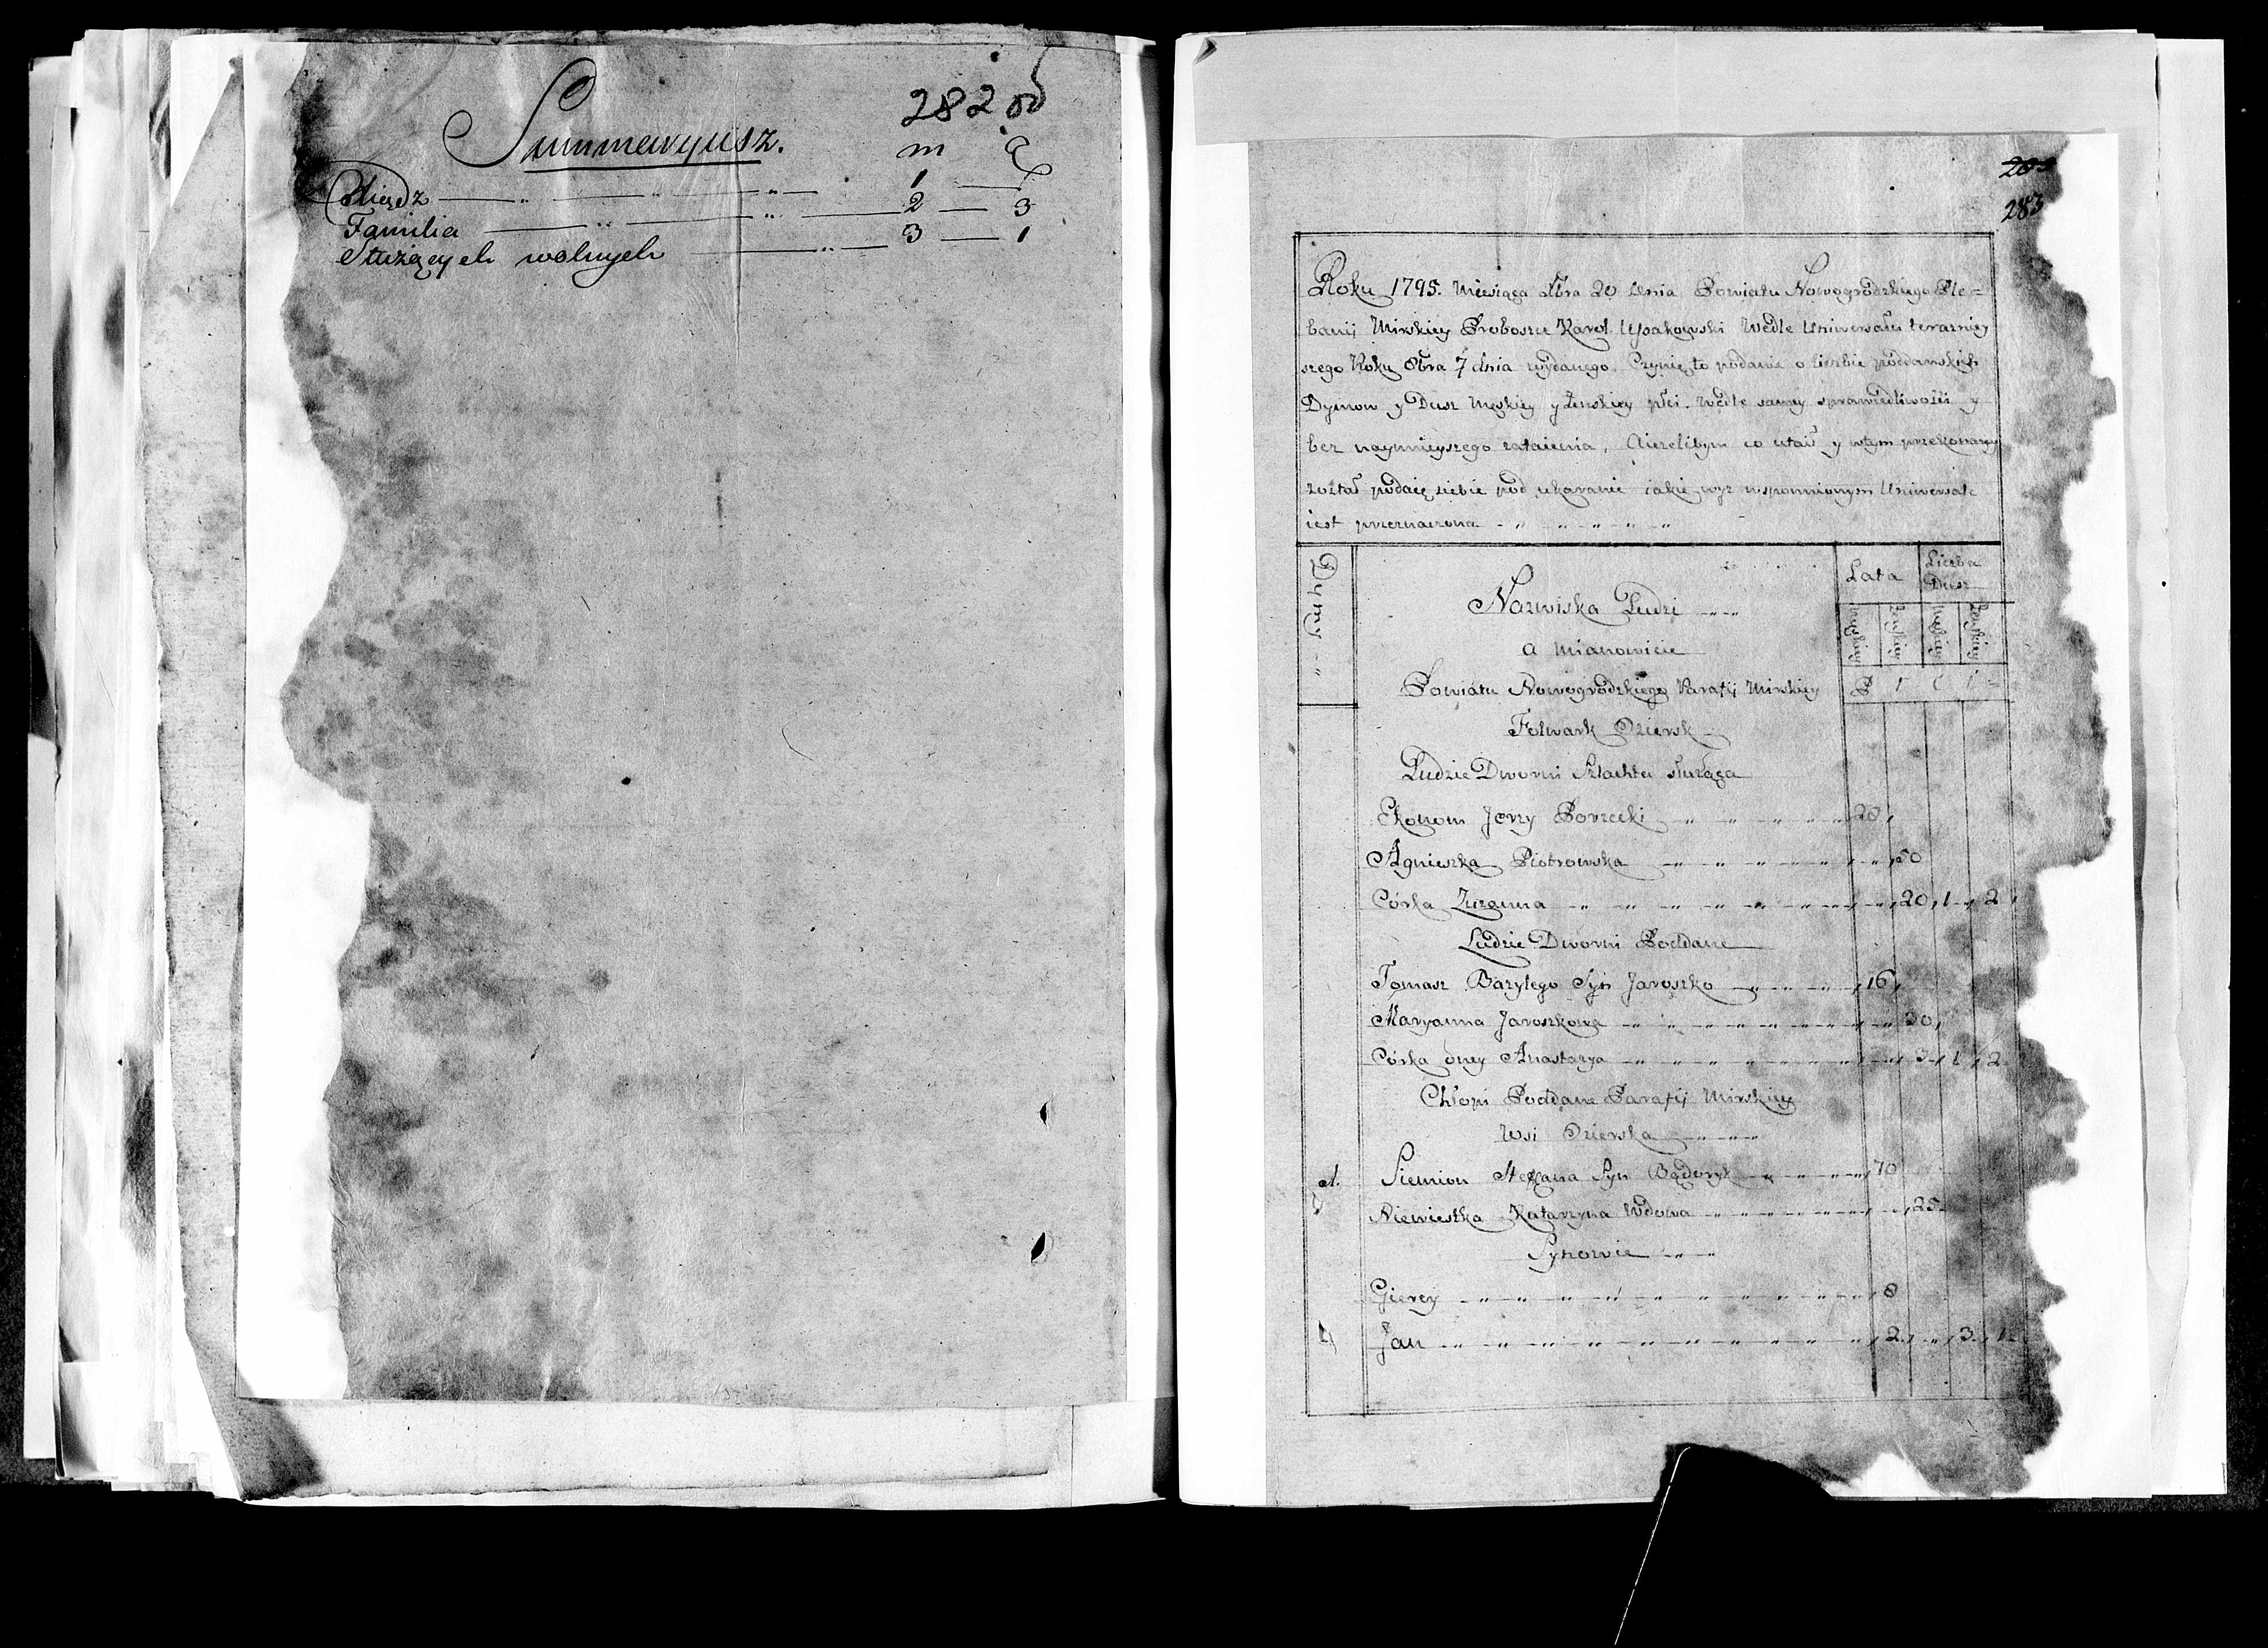 282 od
Summaryusz. m
Xiądz 1
Familia 2 3
Służących wolnych 3 1
283
Roku 1795. Miesiąca 20 dnia Powiatu Nowogrodzkiego Ple=
banij Mirskiey Proboszcz Karol Wedle Uniwersału terazniey
szego Roku 8bra 7 dnia wydanego. Czynię to podanie o liczbie poddanskich
Dymow y Dusz Męskiey y Żenskiey płci. Wedle samey sprawiedliwości y
bez naymnieyszego zataienia, Aiezelibym co utaił y wtym przekonany
został podaię siebie pod ukaranie iakie wyż wspomnionym Uniwersale
iest przeznaczona
Dymy
Nazwiska Ludzi
a mianowicie
Powiatu Nowogrodzkiego Parafij Mirskiey
Lata
Liczba Dusz
męskiey żenskiey męskiey żenskiey
Folwark Oziersk
Ludzie Dworni Szlachta służąca
Ekonom Jerzy Porzecki 20
Agnieszka Piotrowska 50
Córka Zuzanna 20 1 2
Ludzie Dworni Poddane
Tomasz Bazylego Syn Jaroszko 16
Maryanna Jaroszkowa 20
Córka oney Anastazya 3 1 2
Chłopi Poddane Parafij Mirskiey
Wsi Ozierska
1. Siemion Stefana Syn 70
Niewiestka Katarzyna Wdowa 25
Synowie
Gierey 8
Jan 2 3 1